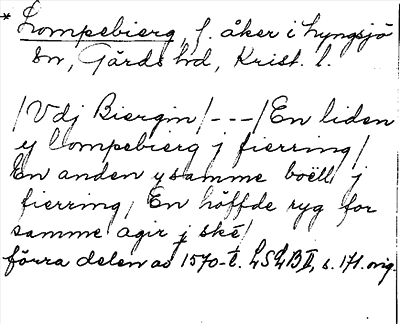 * Lompebierg, f. åker i Lyngsjö
sn, Gärds hd, Krist. l.
/Vdj Biergin/---/En liden
y lompebierg j fierring/
En anden y samme boëll j
fierring/ En höffde ryg for
samme agir j ské/
förra delen av 1570-t. LSLB II, s. 171. orig.